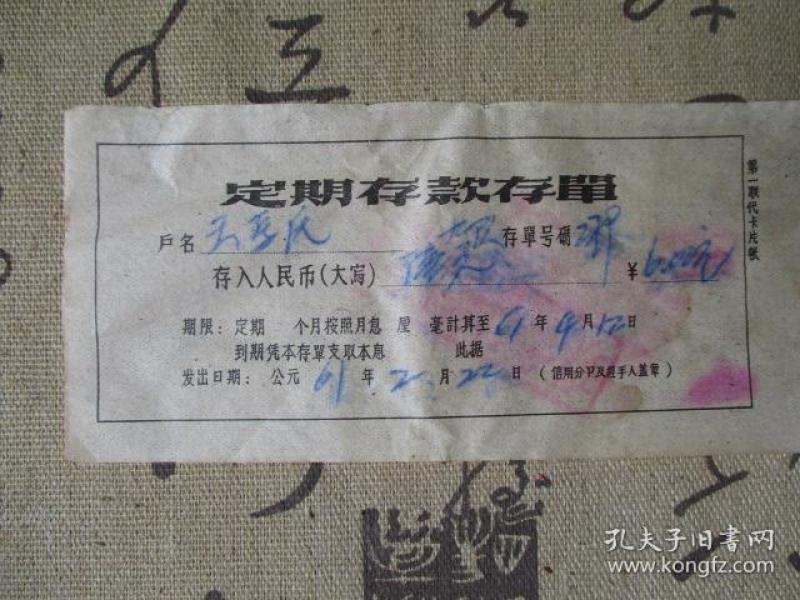 定期存款存單
戶名 存單号碼
存入人民币(大写) ¥ 6.00元
期限：定期 个月按照月息 厘 毫計算至 61 年 4 月 12 日
到期凭本存單支取本息 此据
发出日期：公元 61 年 2 月 22 日 (信用分卩及經手人盖章)
第一联代卡片帳
孔夫子旧書网
www.kongfz.com